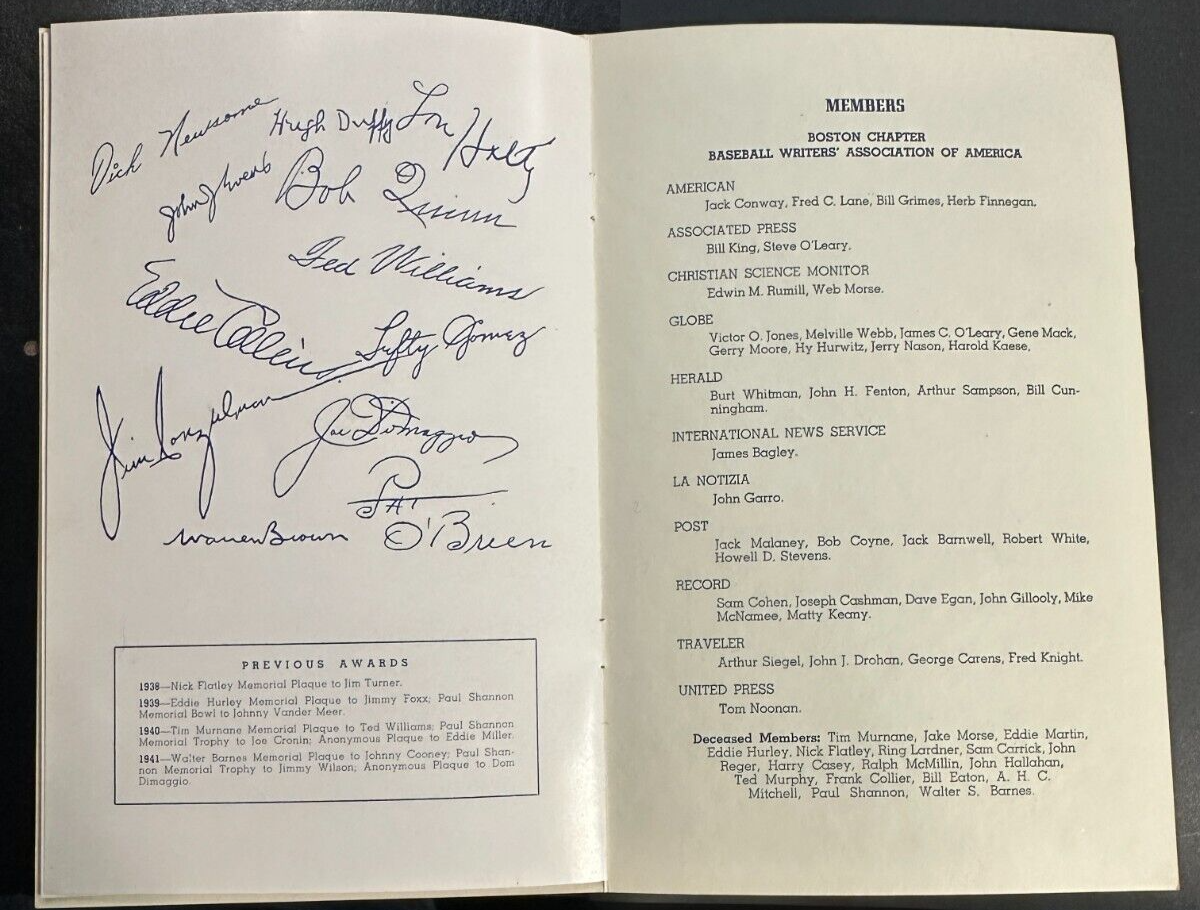 Dick Newsome
Hugh Duffy
Lou
John J Evers
Bob Quinn
Ted Williams
Eddie Collins
Lefty Gomez
Jim
Joe DiMaggio
Pat
O'Brien
Warren Brown
PREVIOUS AWARDS
1938—Nick Flatley Memorial Plaque to Jim Turner.
1939—Eddie Hurley Memorial Plaque to Jimmy Foxx; Paul Shannon
Memorial Bowl to Johnny Vander Meer.
1940—Tim Murnane Memorial Plaque to Ted Williams; Paul Shannon
Memorial Trophy to Joe Cronin; Anonymous Plaque to Eddie Miller.
1941—Walter Barnes Memorial Plaque to Johnny Cooney; Paul Shan-
non Memorial Trophy to Jimmy Wilson; Anonymous Plaque to Dom
Dimaggio.
MEMBERS
BOSTON CHAPTER
BASEBALL WRITERS' ASSOCIATION OF AMERICA
AMERICAN
Jack Conway, Fred C. Lane, Bill Grimes, Herb Finnegan.
ASSOCIATED PRESS
Bill King, Steve O'Leary.
CHRISTIAN SCIENCE MONITOR
Edwin M. Rumill, Web Morse.
GLOBE
Victor O. Jones, Melville Webb, James C. O'Leary, Gene Mack,
Gerry Moore, Hy Hurwitz, Jerry Nason, Harold Kaese.
HERALD
Burt Whitman, John H. Fenton, Arthur Sampson, Bill Cun-
ningham.
INTERNATIONAL NEWS SERVICE
James Bagley.
LA NOTIZIA
John Garro.
POST
Jack Malaney, Bob Coyne, Jack Barnwell, Robert White,
Howell D. Stevens.
RECORD
Sam Cohen, Joseph Cashman, Dave Egan, John Gillooly, Mike
McNamee, Matty Keany.
TRAVELER
Arthur Siegel, John J. Drohan, George Carens, Fred Knight.
UNITED PRESS
Tom Noonan.
Deceased Members: Tim Murnane, Jake Morse, Eddie Martin,
Eddie Hurley. Nick Flatley, Ring Lardner, Sam Carrick, John
Reger, Harry Casey, Ralph McMillin, John Hallahan,
Ted Murphy, Frank Collier, Bill Eaton, A. H. C.
Mitchell, Paul Shannon, Walter S. Barnes.